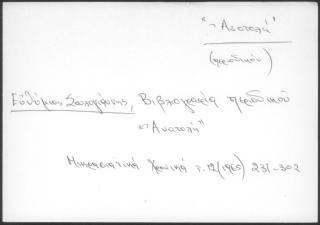 "Ἀνατολή"
(περιοδικόν)
Εὐθύμιος Σουλογιάννης, Βιβλιογραφία περιοδικοῦ
"Ἀνατολή"
Μικρασιατικά Χρονικά τ. 12 (1965) 231-302